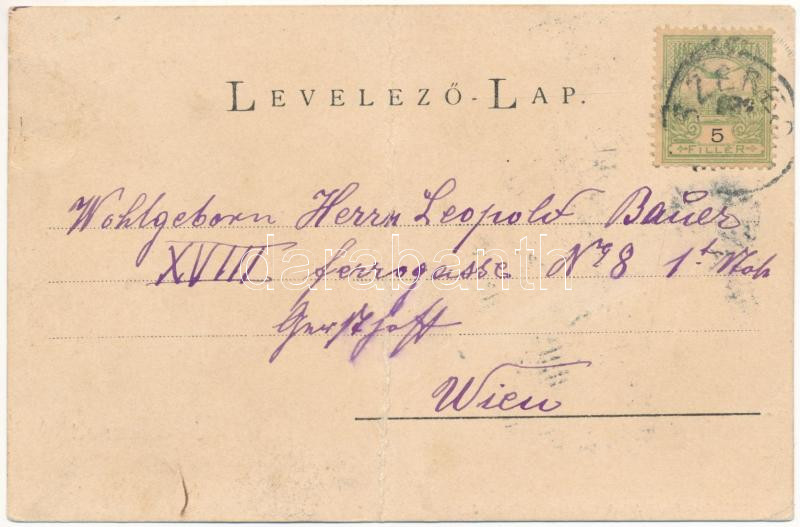 LEVELEZŐ-LAP.
5
FILLÉR
SZERED
Wohlgeborn Herrn Leopold Bauer
XVIII. ferrogasse No 8 1t Stock
Gersthoff
Wien
darabanth